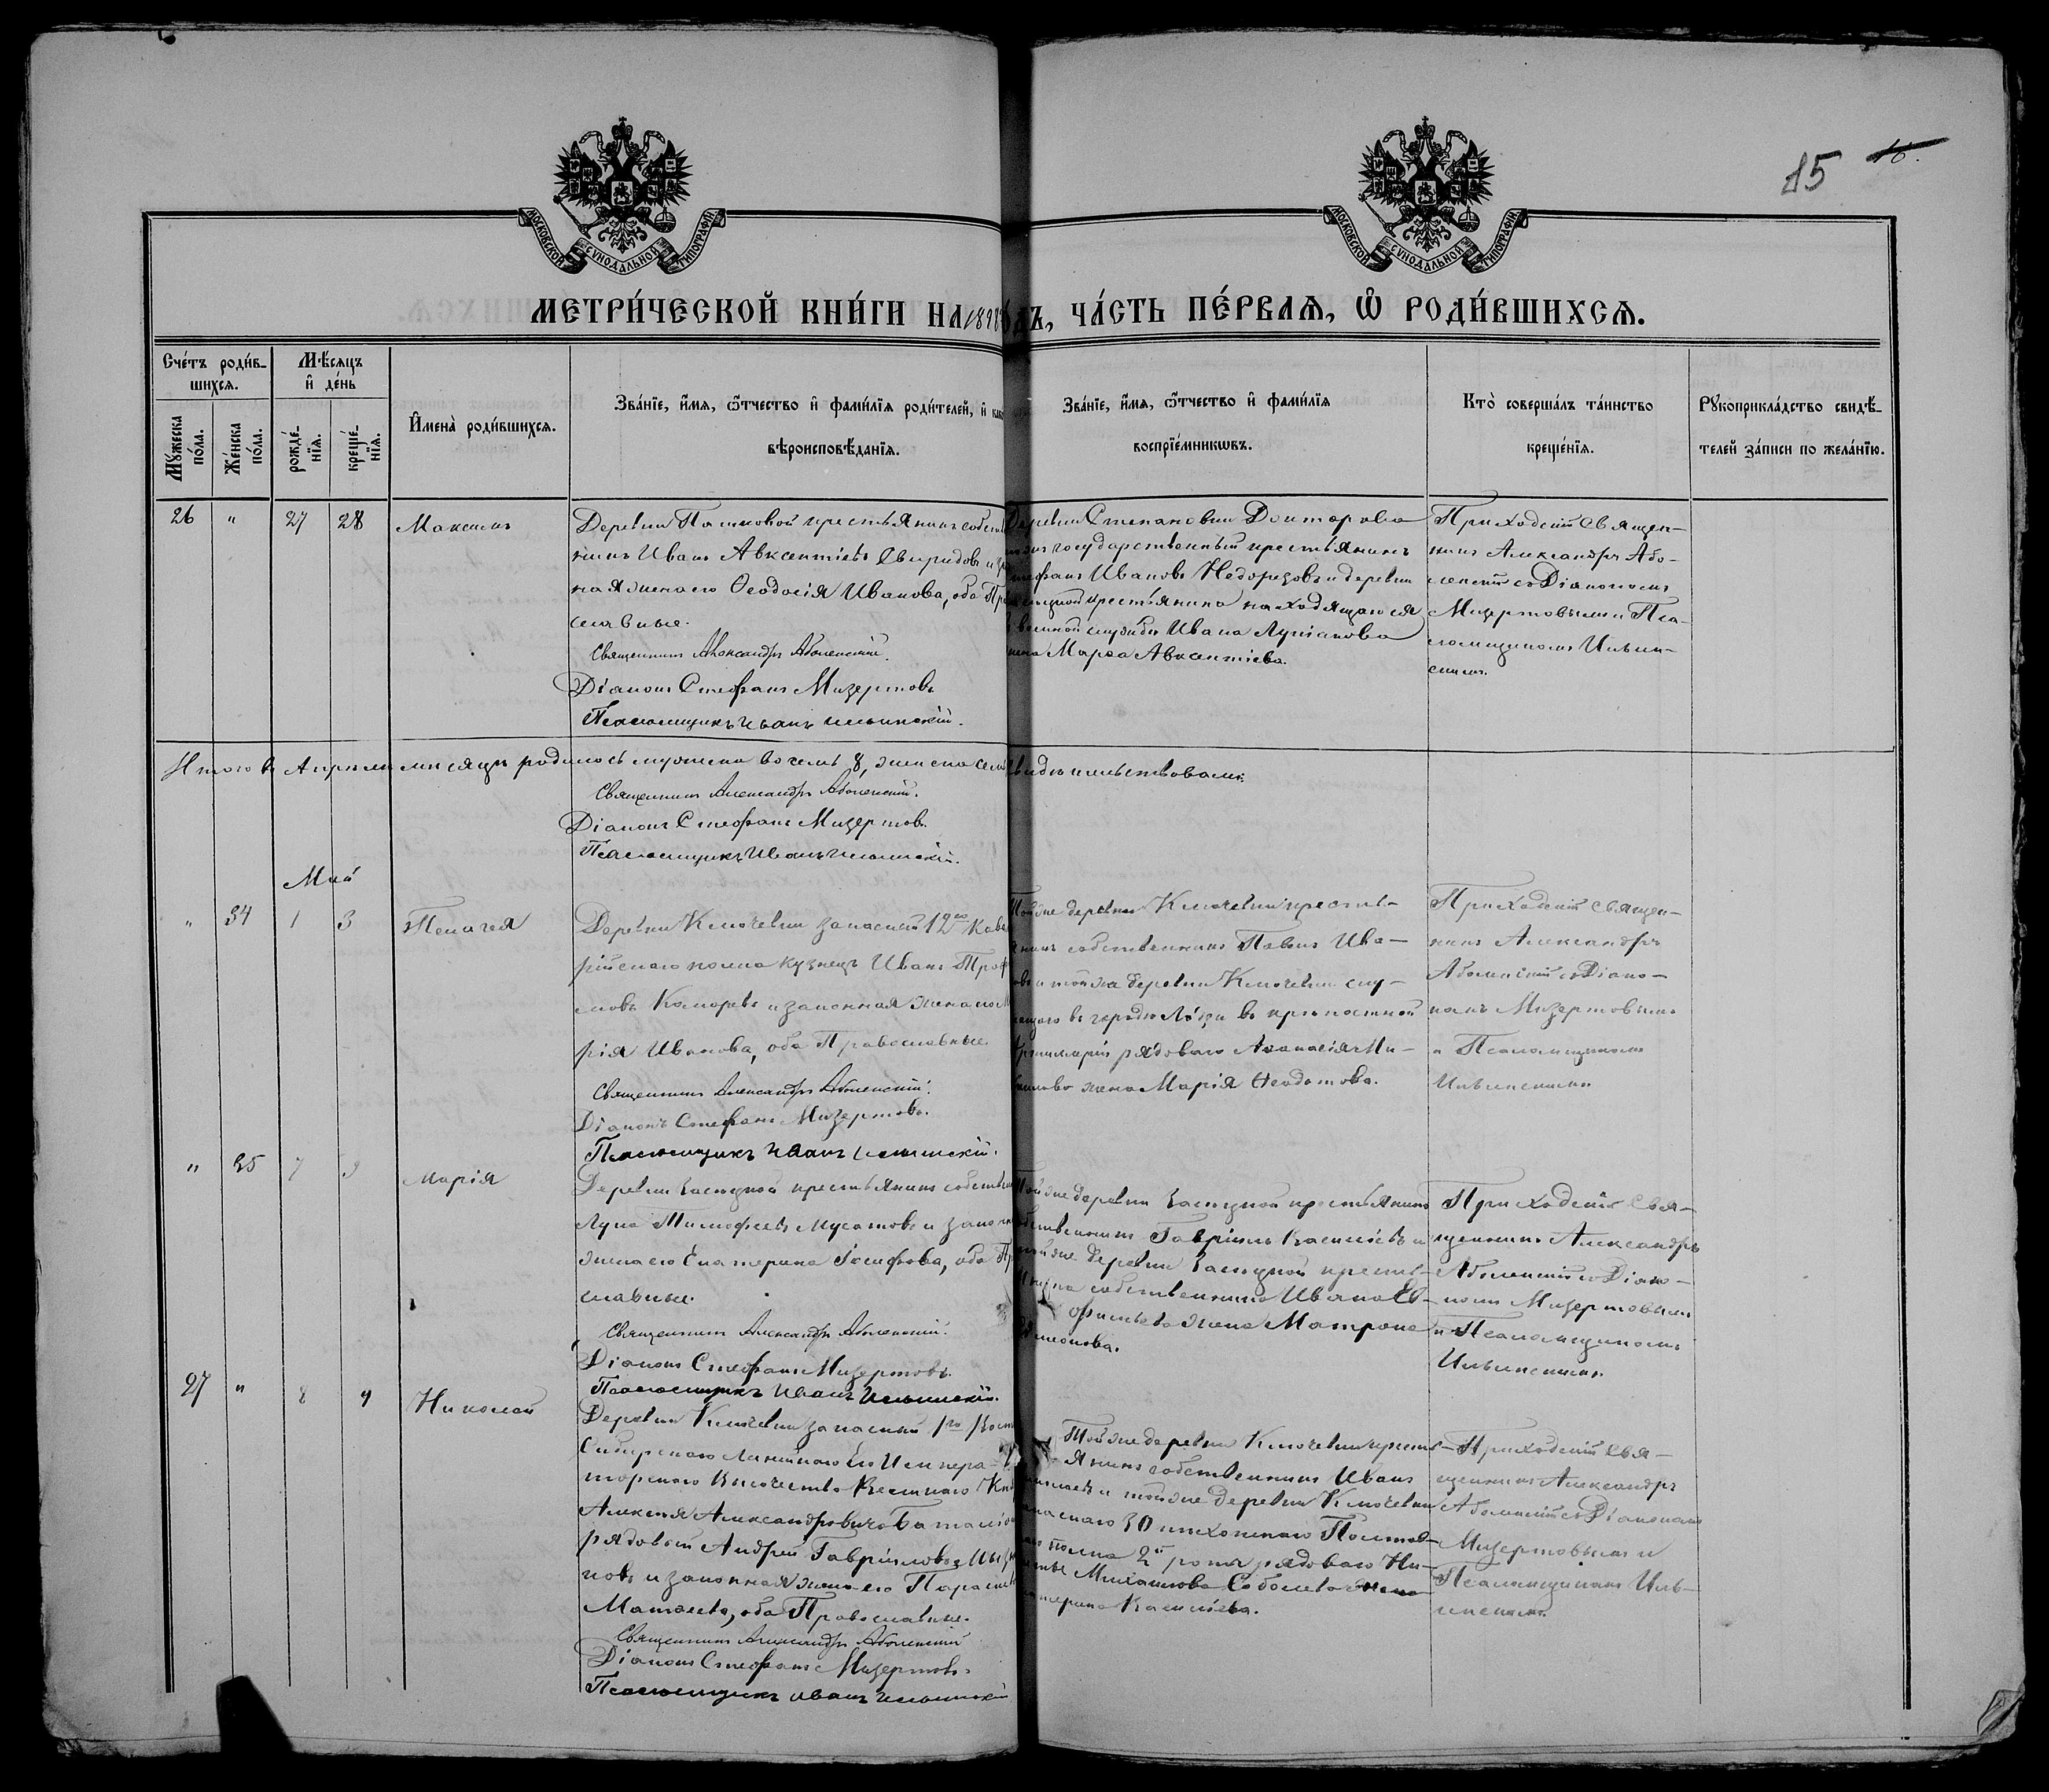 МОСКОВСКОЙ СѴНОДАЛЬНОЙ ТИПОГРАФІИ
МОСКОВСКОЙ СѴНОДАЛЬНОЙ ТИПОГРАФІИ
85 16.
МЕТРИ́ЧЕСКОЙ КНИ́ГИ НА 1898 ГОДЪ, ЧА́СТЬ ПЕ́РВАѦ, Ѽ РОДИ́ВШИХСѦ.
Сче́тъ роди́в-
шихсѧ.
Мꙋ́жеска
по́ла.
Же́нска
по́ла.
Мѣ́сѧцъ
и҆ де́нь
рожде́-
нїѧ.
креще́-
нїѧ.
И҆мена̀ роди́вшихсѧ.
Зва́нїе, и҆́мѧ, ѻ҆́тчество и҆ фами́лїѧ роди́телей, и҆ како
вѣроисповѣ́данїѧ.
Зва́нїе, и҆́мѧ, ѻ҆́тчество и҆ фами́лїѧ
воспрїе́мникѡвъ.
Кто̀ соверша́лъ та́инство
креще́нїѧ.
Рꙋкоприкла́дство свидѣ́-
телей за́писи по жела́нїю.
26 " 27 28 Максимъ
Деревни Пашковой крестьянинъ собств
никъ Иванъ Авксентіевъ Свиридовъ и за
ная жена его Ѳеодосія Иванова, оба Пр
славные.
Священникъ Александръ Аболенскій.
Діаконъ Стефанъ Мизертовъ
Псаломщикъ Иванъ Ильинскій.
Деревни Степановки Докторова
государственный крестьянинъ
Стефанъ Ивановъ Недорезовъ и деревни
крестьянина находящагося
военной службѣ Ивана Лукіанова
жена Марѳа Авксентіева.
Приходскій Священ-
никъ Александръ Або-
ленскій съ Діакономъ
Мизертовымъ и Пса-
ломщикомъ Ильин-
скимъ.
Итого въ Апрѣлѣ мѣсяцѣ родилось мужеска восемь 8, женска сем свидѣтельствовали:
Священникъ Александръ Аболенскій.
Діаконъ Стефанъ Мизертовъ.
Псаломщикъ Иванъ Ильинскій.
Май
" 34 1 3 Пелагея
Деревни Ключевки запасный 12го Кава
рійскаго полка кузнецъ Иванъ Троф
мовъ Комаревъ и законная жена его М
рія Иванова, оба Православные.
Священникъ Александръ Аболенскій.
Діаконъ Стефанъ Мизертовъ.
Псаломщикъ Иванъ Ильинскій.
Той же деревни Ключевки кресть-
янинъ собственникъ Павелъ Ива-
новъ и той же деревни Ключевки слу-
жащаго въ городѣ въ крѣпостной
Артиллеріи рядоваго Аѳанасія Ми-
хайлова жена Марія Ѳеодотова.
Приходскій Священ-
никъ Александръ
Аболенскій съ Діако-
номъ Мизертовымъ
и Псаломщикомъ
Ильинскимъ
" 35 7 9 Марія
Деревни крестьянинъ собствен
Лука Тимофеевъ Мусатовъ и закон
жена его Екатерина Іосифова, оба Пр
славные.
Священникъ Александръ Аболенскій.
Діаконъ Стефанъ Мизертовъ.
Псаломщикъ Иванъ Ильинскій.
Той же деревни крестьянинъ
собственникъ Гавріилъ Василіевъ и
той же деревни кресть-
янина собственника Ивана Ев-
фимьева жена Матрона
Симеонова.
Приходскій Свя-
щенникъ Александръ
Аболенскій съ Діако-
номъ Мизертовымъ
и Псаломщикомъ
Ильинскимъ.
27 " 8 9 Николай
Деревни Ключевки запасный 1го Вост
Сибирскаго Линейнаго Его Импера-
торскаго Высочества Великаго Кн
Алексѣя Александровича Баталіо
рядовый Андрей Гавріиловъ
новъ и законная жена его Параске
Матѳеева, оба Православные.
Священникъ Александръ Аболенскій
Діаконъ Стефанъ Мизертовъ.
Псаломщикъ Иванъ Ильинскій
Той же деревни Ключевки кресть-
янинъ собственникъ Иванъ
и той же деревни Ключевки
запаснаго 30 пѣхотнаго Полтав-
скаго полка 2й роты рядоваго Ни-
киты Михаилова Соболева жена
Екатерина Василіева.
Приходскій Свя-
щенникъ Александръ
Аболенскій съ Діакономъ
Мизертовымъ и
Псаломщикомъ Иль-
инскимъ.